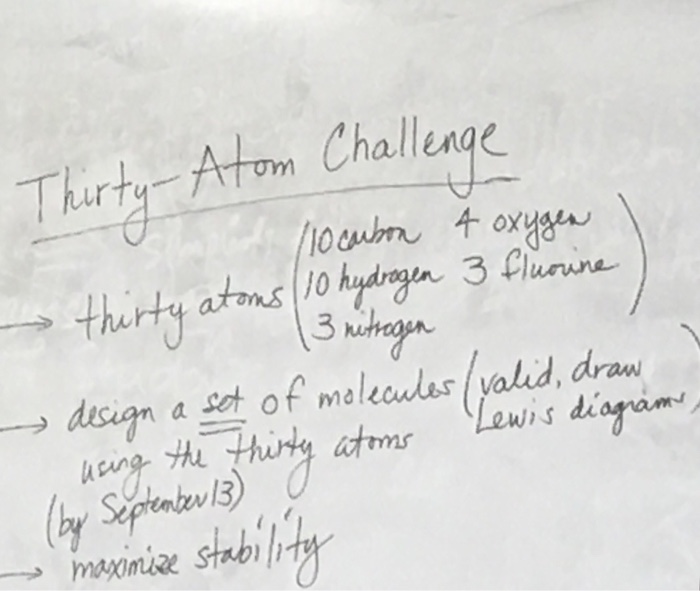 Thirty-Atom Challenge
→ thirty atoms (10 carbon 4 oxygen
10 hydrogen 3 fluorine
3 nitrogen)
→ design a set of molecules (valid, draw
Lewis diagrams)
using the thirty atoms
(by September 13)
→ maximize stability